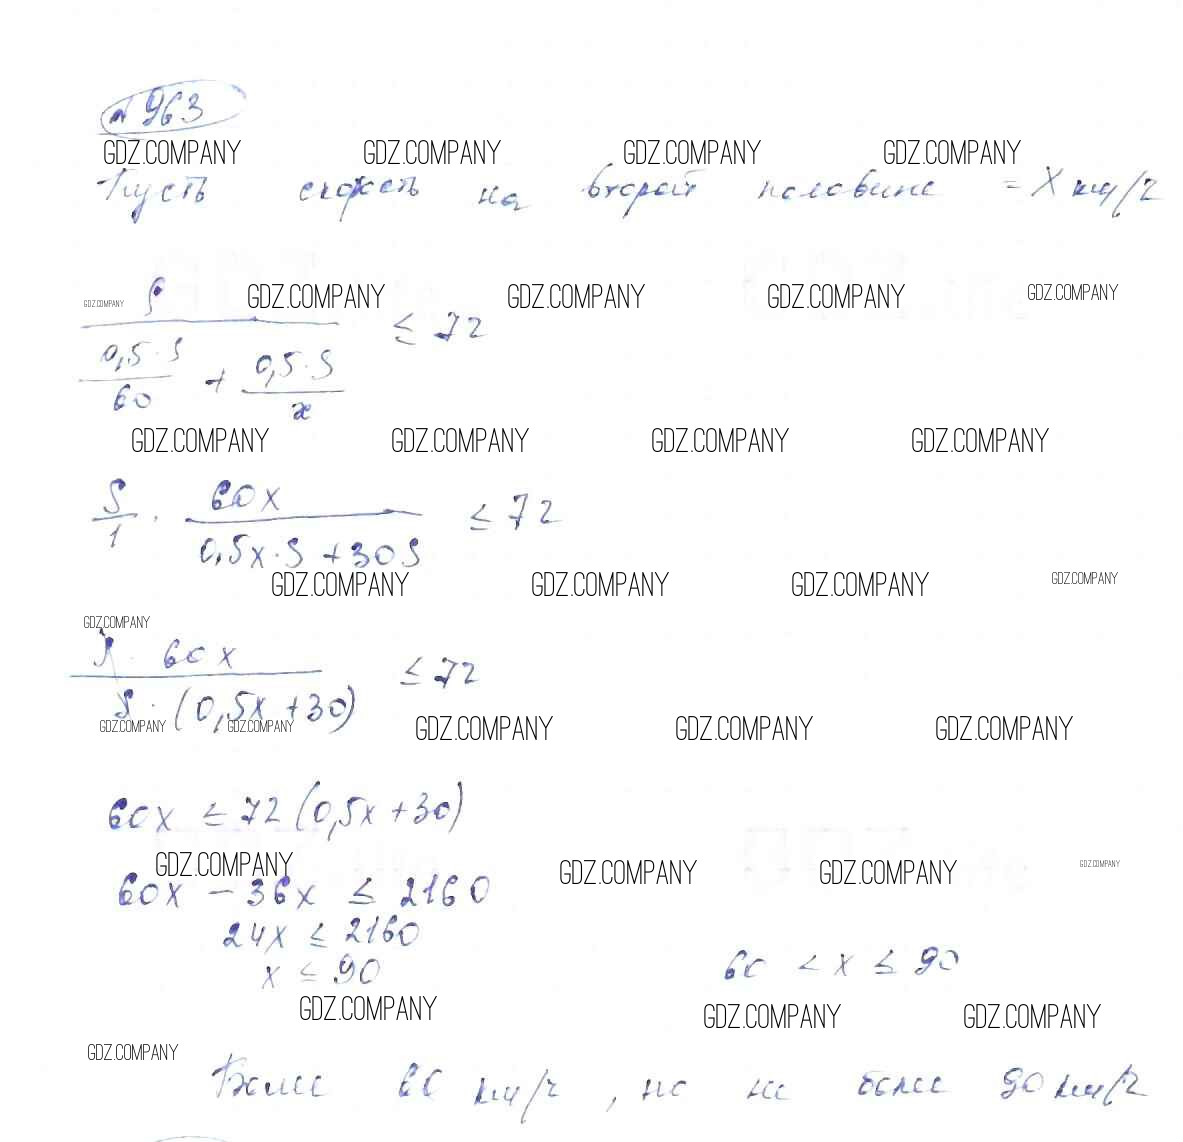 № 963
GDZ.COMPANY GDZ.COMPANY GDZ.COMPANY GDZ.COMPANY
Пусть скорость на второй половине = X км/ч
GDZ.COMPANY S GDZ.COMPANY GDZ.COMPANY GDZ.COMPANY GDZ.COMPANY
≤ 72
0,5·S / 60 + 0,5·S / x
GDZ.COMPANY GDZ.COMPANY GDZ.COMPANY GDZ.COMPANY
S/1 · 60x / (0,5x·S + 30S) ≤ 72
GDZ.COMPANY GDZ.COMPANY GDZ.COMPANY GDZ.COMPANY
GDZ.COMPANY
S · 60x / S · (0,5x + 30) ≤ 72
GDZ.COMPANY GDZ.COMPANY GDZ.COMPANY GDZ.COMPANY GDZ.COMPANY
60x ≤ 72 (0,5x + 30)
GDZ.COMPANY GDZ.COMPANY GDZ.COMPANY GDZ.COMPANY
60x - 36x ≤ 2160
24x ≤ 2160
x ≤ 90 60 < x ≤ 90
GDZ.COMPANY GDZ.COMPANY GDZ.COMPANY
GDZ.COMPANY
Более 60 км/ч, но не более 90 км/ч